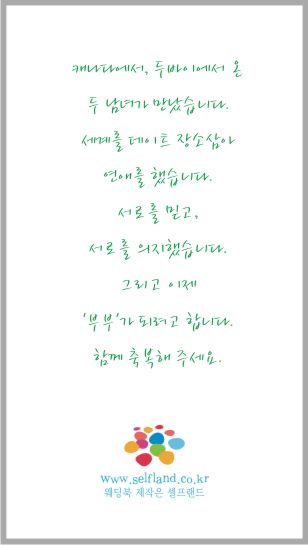 캐나다에서, 두바이에서 온
두 남녀가 만났습니다.
세계를 데이트 장소삼아
연애를 했습니다.
서로를 믿고,
서로를 의지했습니다.
그리고 이제
'부부'가 되려고 합니다.
함께 축복해 주세요.
www.selfland.co.kr
웨딩북 제작은 셀프랜드